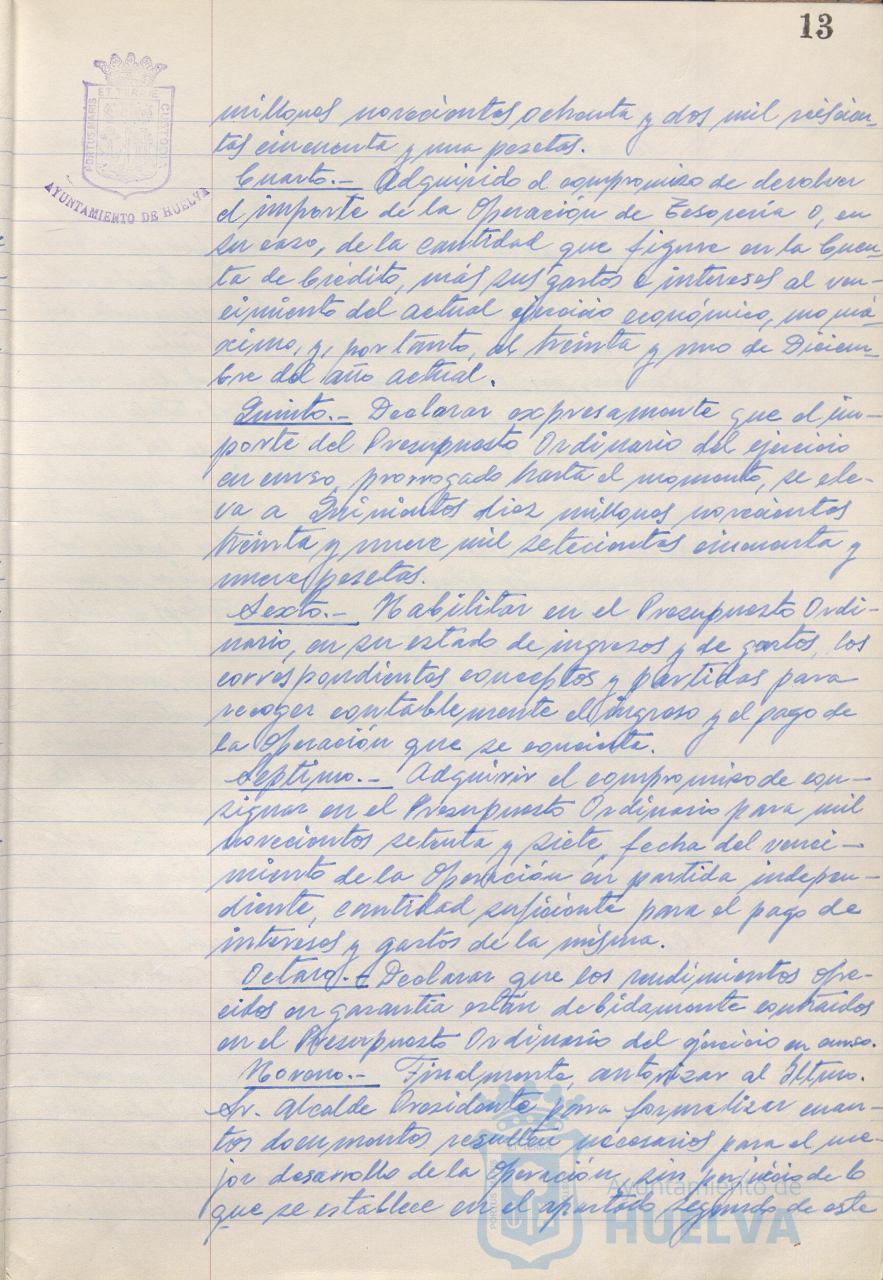 13
ET TERRE
PORTUS MARIS
CUSTODIA
AYUNTAMIENTO DE HUELVA
millones novecientos ochenta y dos mil seiscien-
tas cincuenta y una pesetas.
Cuarto.- Adquirido el compromiso de devolver
el importe de la Operación de Tesorería o, en
su caso, de la cantidad que figure en la Cuen-
ta de Crédito, más sus gastos e intereses al ven-
cimiento del actual ejercicio económico, como má-
ximo, y, por tanto, al treinta y uno de Diciem-
bre del año actual.
Quinto.- Declarar expresamente que el im-
porte del Presupuesto Ordinario del ejercicio
en curso, prorrogado hasta el momento, se ele-
va a Quinientos diez millones novecientos
treinta y nueve mil setecientas cincuenta y
nueve pesetas.
Sexto.- Habilitar en el Presupuesto Ordi-
nario, en su estado de ingresos y de gastos, los
correspondientes conceptos y partidas para
recoger contablemente el ingreso y el pago de
la Operación que se concierta.
Septimo.- Adquirir el compromiso de con-
signar en el Presupuesto Ordinario para mil
novecientos setenta y siete, fecha del venci-
miento de la Operación en partida indepen-
diente, cantidad suficiente para el pago de
intereses y gastos de la misma.
Octavo.- Declarar que los rendimientos ofre-
cidos en garantía están debidamente contraidos
en el Presupuesto Ordinario del ejercicio en curso.
Noveno.- Finalmente, autorizar al Iltmo.
Sr. Alcalde Presidente para formalizar cuan-
tos documentos resulten necesarios para el me-
jor desarrollo de la Operación, sin perjuicio de lo
que se establece en el apartado segundo de este
Ayuntamiento de
HUELVA